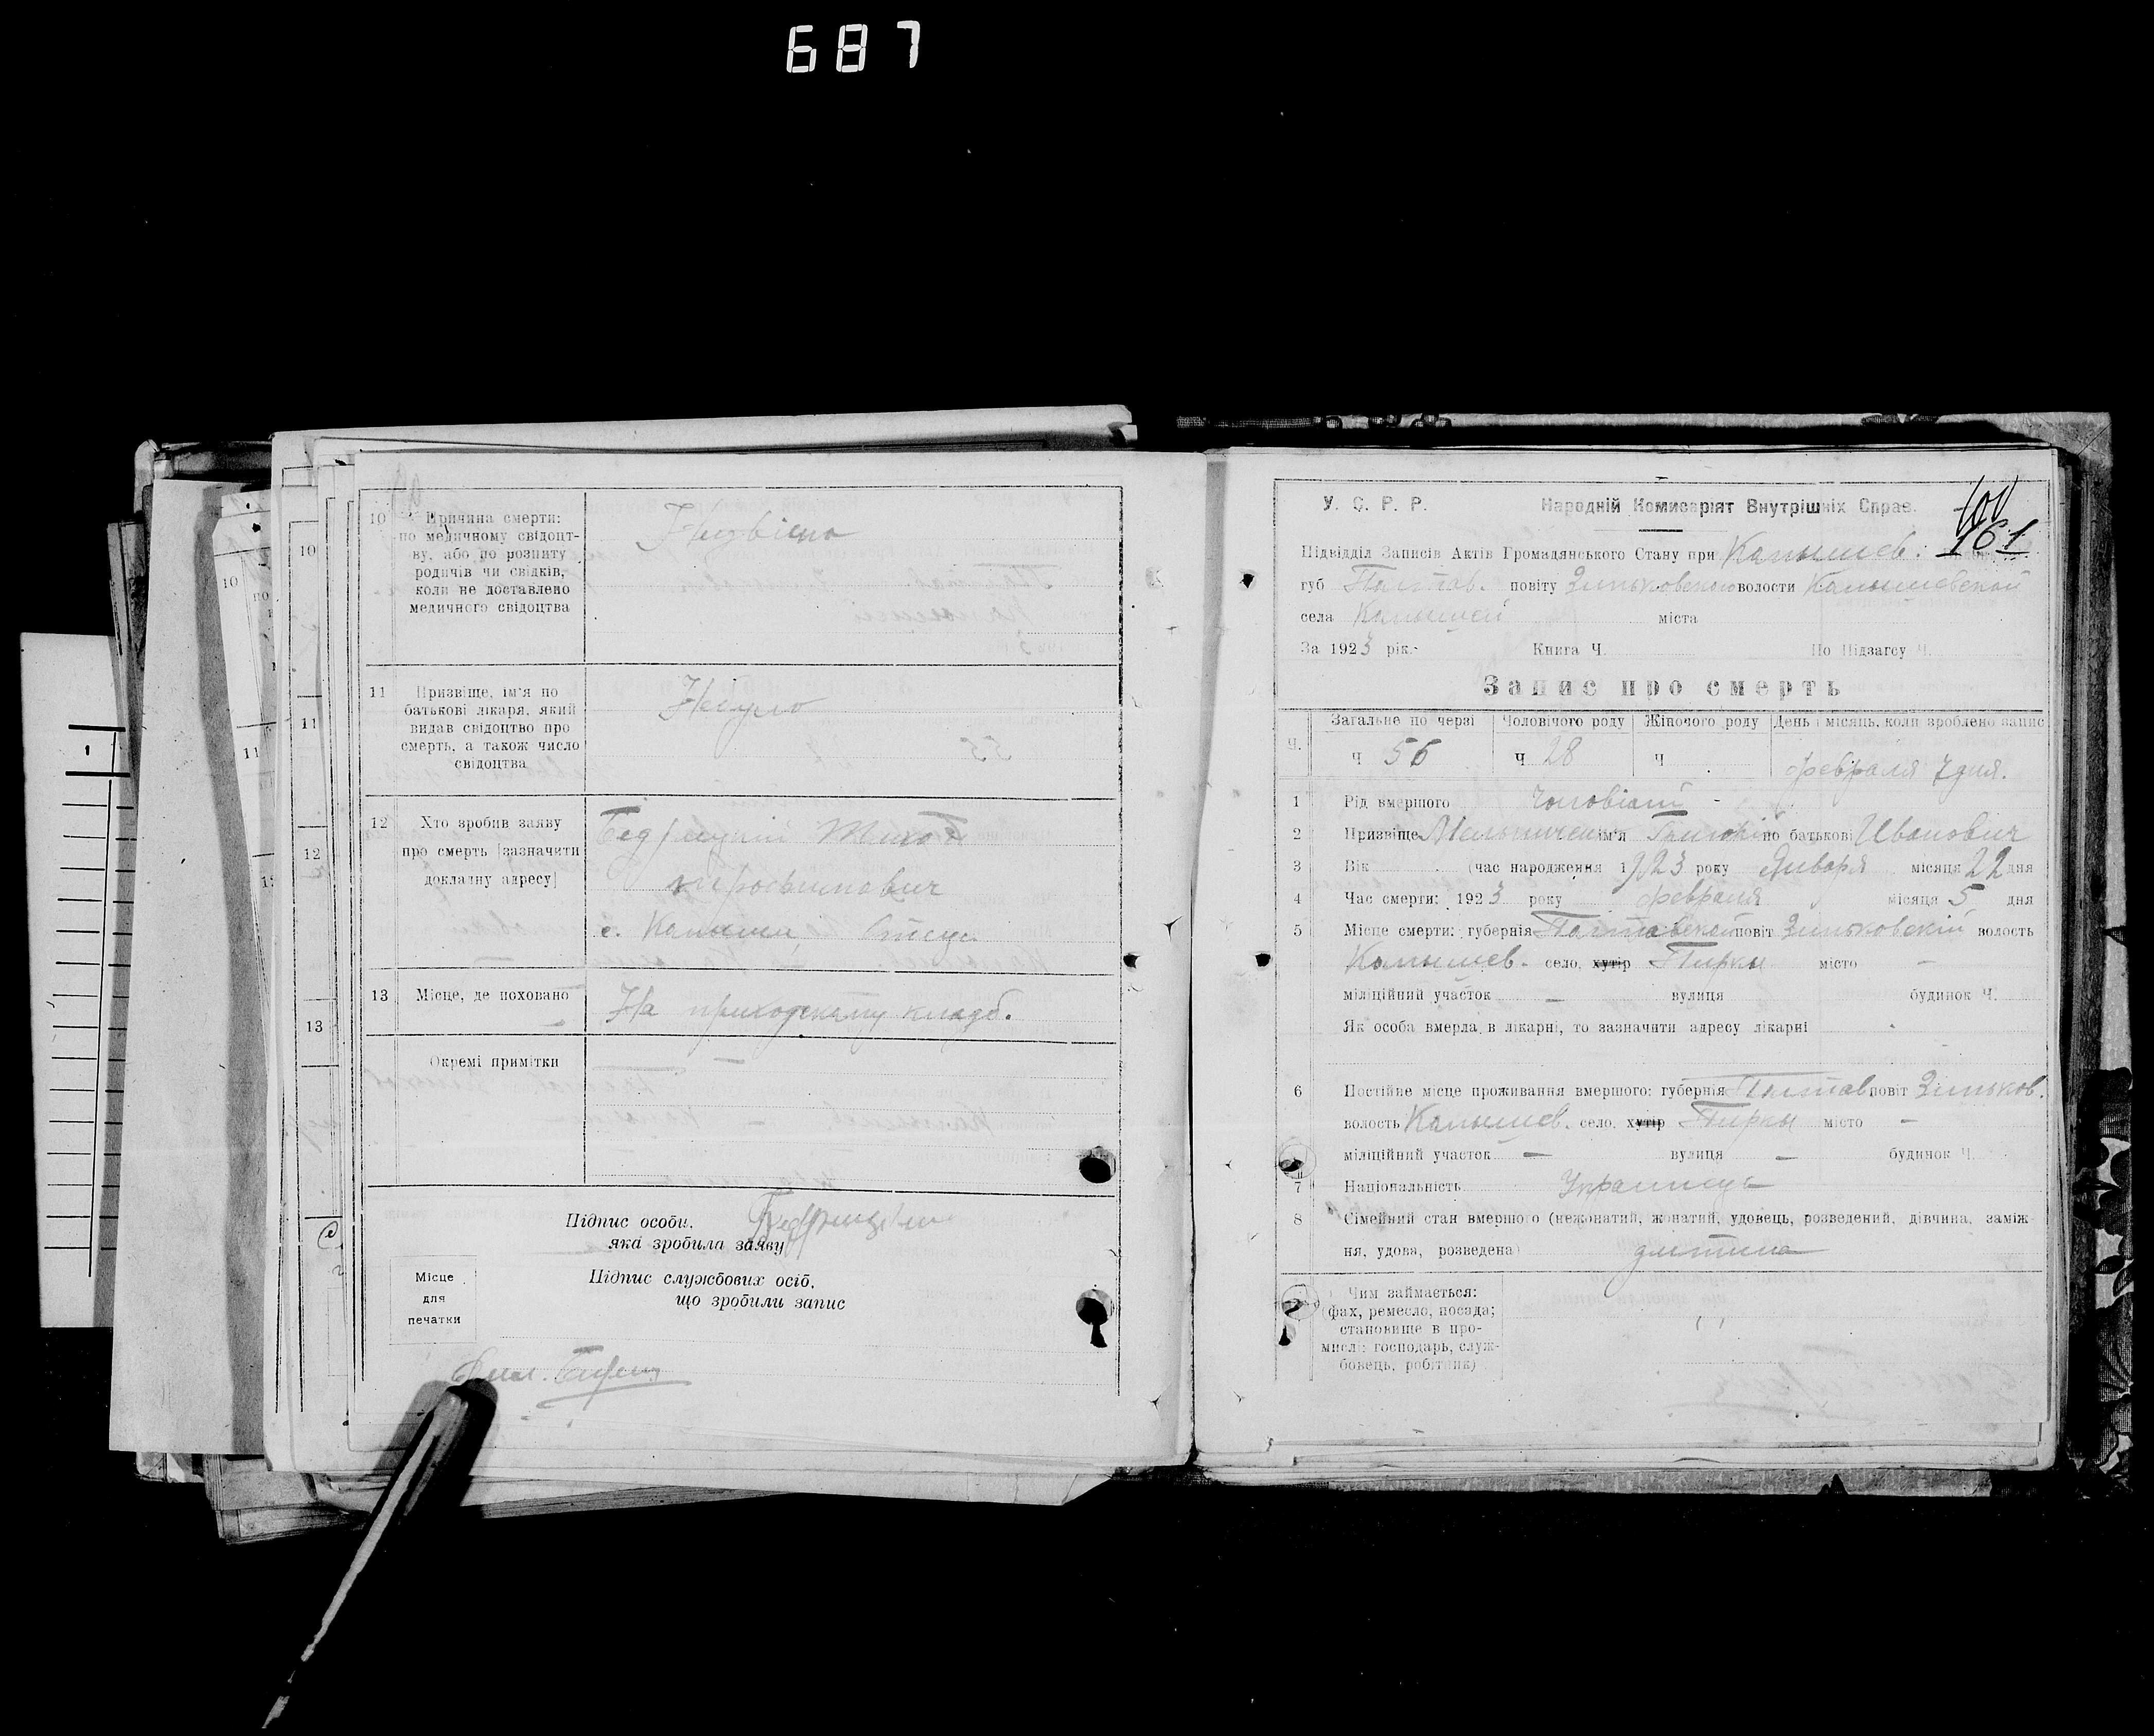 687
10
Причина смерти:
по медичному свідоцт-
ву, або по розпиту
родичів чи свідків,
коли не доставлено
медичного свідоцтва
11
Призвіще, ім'я по
батькові лікаря, який
видав свідоцтво про
смерть, а також число
свідоцтва
12
Хто зробив заяву
про смерть (зазначити
докладну адресу)
с.
13 Місце, де поховано На приходскому кладб.
Окремі примітки —
Підпис особи,
яка зробила заяву
Підпис службових осіб,
що зробили запис
Місце
для
печатки
10
11
12
13
10
11
У. С. Р. Р. Народній Комисаріят Внутрішніх Справ.
101
161
Підвідділ Записів Актів Громадянського Стану при Камышев.
губ Полтав. повіту Зиньковского волости Камышевской
села міста
За 1923 рік. Книга Ч. По Підзагсу Ч.
Запис про смерть
Ч. Загальне по черзі Чоловічого роду Жіночого роду День і місяць, коли зроблено запис
Ч 56 Ч 28 Ч февраля 7 дня.
1 Рід вмершого
2 Призвіще Мельниченк ім'я Григорій по батькові Иванович
3 Вік (час народження 1923 року Января місяця 22 дня
4 Час смерти: 1923 року февраля місяця 5 дня
5 Місце смерти: губернія Полтавской повіт Зиньковскій волость
Камышев. село, хутір Пирки місто —
міліційний участок — вулиця будинок Ч.
Як особа вмерла в лікарні, то зазначити адресу лікарні
6 Постійне місце проживання вмершого: губернія Полтав. повіт Зиньков.
волость Камышев. село, хутір Пирки місто —
міліційний участок — вулиця — будинок Ч.
7 Національність Украинець
8 Сімейний стан вмершого (нежонатий, жонатий, удовець, розведений, дівчина, заміж-
ня, удова, розведена) дитина
Чим займається:
(фах, ремесло, посада;
становище в про-
мислі: господарь, служ-
бовець, робітник)